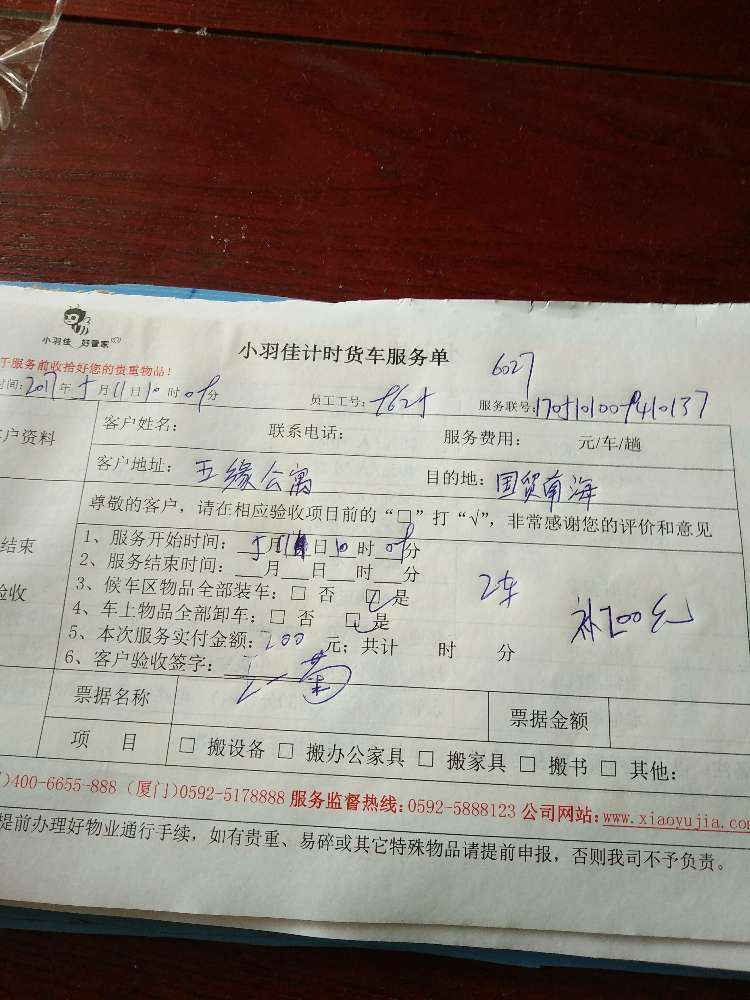 小羽佳 好管家
小羽佳计时货车服务单
于服务前收拾好您的贵重物品！
6027
时间：2017年5月11日10时05分 员工工号：5625 服务联号：
户资料
客户姓名： 联系电话： 服务费用： 元/车/趟
客户地址：五缘公寓 目的地：国贸南海
尊敬的客户，请在相应验收项目前的“□”打“√”，非常感谢您的评价和意见
结束
验收
1、服务开始时间：5月11日10时05分
2、服务结束时间：___月___日___时___分
3、候车区物品全部装车：□ 否 ☑ 是
2车
补200元
4、车上物品全部卸车：□ 否 ☑ 是
5、本次服务实付金额：200 元；共计 时 分
6、客户验收签字：
票据名称 票据金额
项 目 □ 搬设备 □ 搬办公家具 □ 搬家具 □ 搬书 □ 其他：
)400-6655-888 (厦门)0592-5178888 服务监督热线：0592-5888123 公司网站：www.xiaoyujia.com
提前办理好物业通行手续，如有贵重、易碎或其它特殊物品请提前申报，否则我司不予负责。